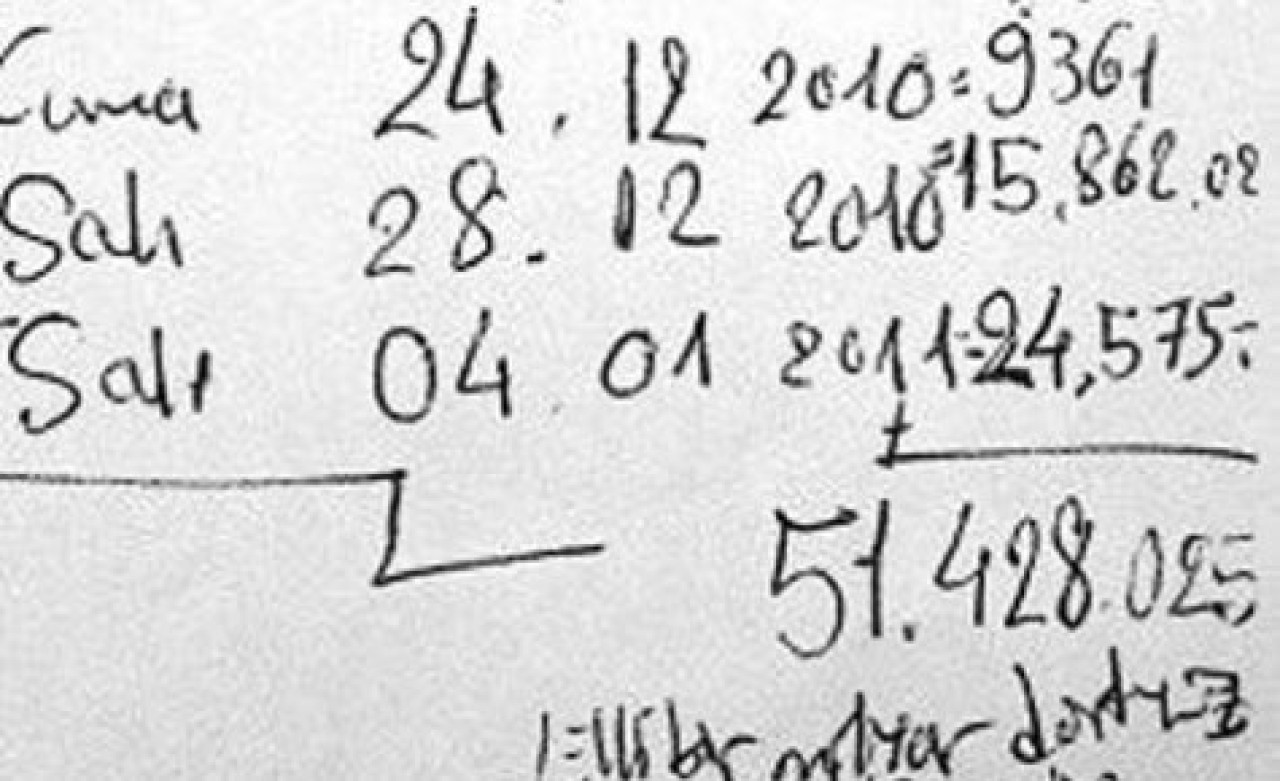 Cuma 24.12 2010=9361
Salı 28.12 2010=15.862.02
Salı 04.01 2011=24,575=
+
51.428.025=
Elli bir milyar dörtyüz